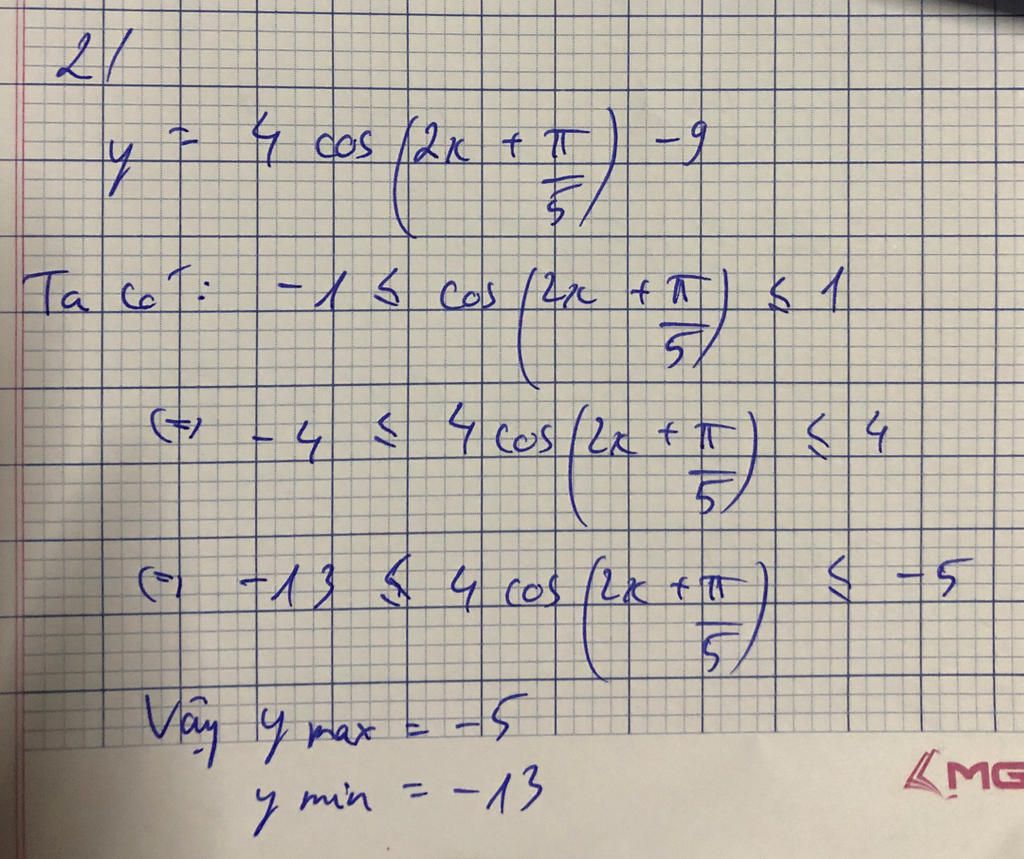 2/
y = 4 cos(2x + π/5) - 9
Ta có: -1 ≤ cos(2x + π/5) ≤ 1
(=) -4 ≤ 4 cos(2x + π/5) ≤ 4
(=) -13 ≤ 4 cos(2x + π/5) ≤ -5
Vậy y max = -5
y min = -13
MG